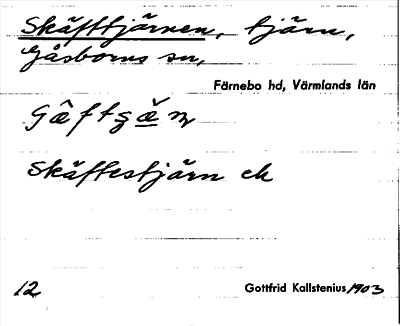 Skäfttjärnen, tjärn,
Gåsborns sn,
Färnebo hd, Värmlands län
Skäftestjärn ek
12 Gottfrid Kallstenius 1903